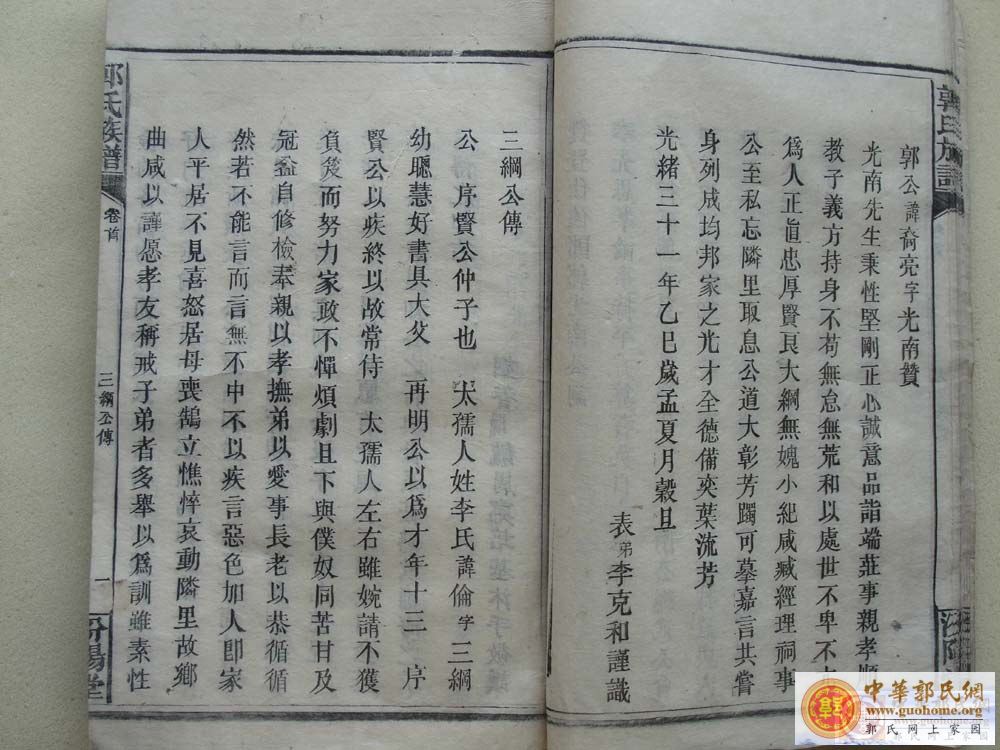 郭氏族譜
郭公諱裔亮字光南贊
光南先生秉性堅剛正心誠意品詣端莊事親孝順
教子義方持身不苟無怠無荒和以處世不卑不
爲人正直忠厚賢良大綱無媿小紀咸臧經理祠事
公至私忘隣里取息公道大彰芳躅可摹嘉言共嘗
身列成均邦家之光才全德備奕葉流芳
光緒三十一年乙巳歲孟夏月穀旦
表弟李克和謹識
汾陽
三綱公傳
公序賢公仲子也 太孺人姓李氏諱倫字三綱
幼聰慧好書具大父 再明公以爲才年十三 序
賢公以疾終以故常待 太孺人左右雖婉請不獲
負笈而努力家政不憚煩劇且下與僕奴同苦甘及
冠益自修檢奉親以孝撫弟以愛事長老以恭循循
然若不能言而言無不中不以疾言惡色加人卽家
人平居不見喜怒居母喪鵠立憔悴哀動隣里故鄉
曲咸以謹愿孝友稱戒子弟者多舉以爲訓雖素性
郭氏族譜
卷首
三綱公傳
一
汾陽堂
中華郭氏網
www.guohome.org
郭氏网上家园